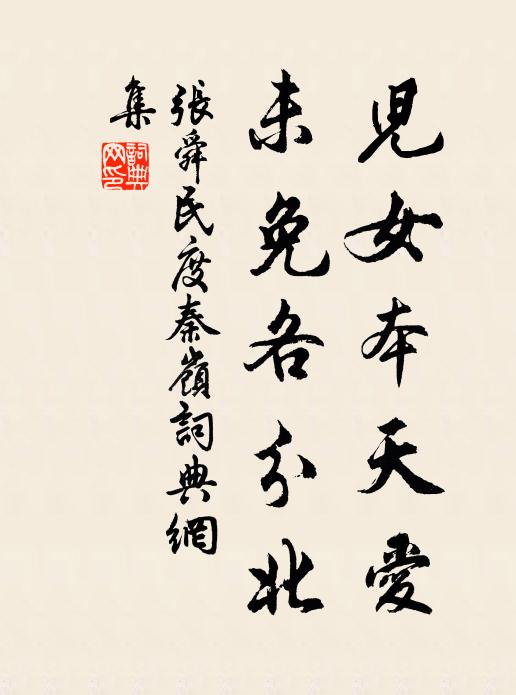 児女本天愛
未免各分北
張舜民度秦嶺詞典網
集
詞典
网印